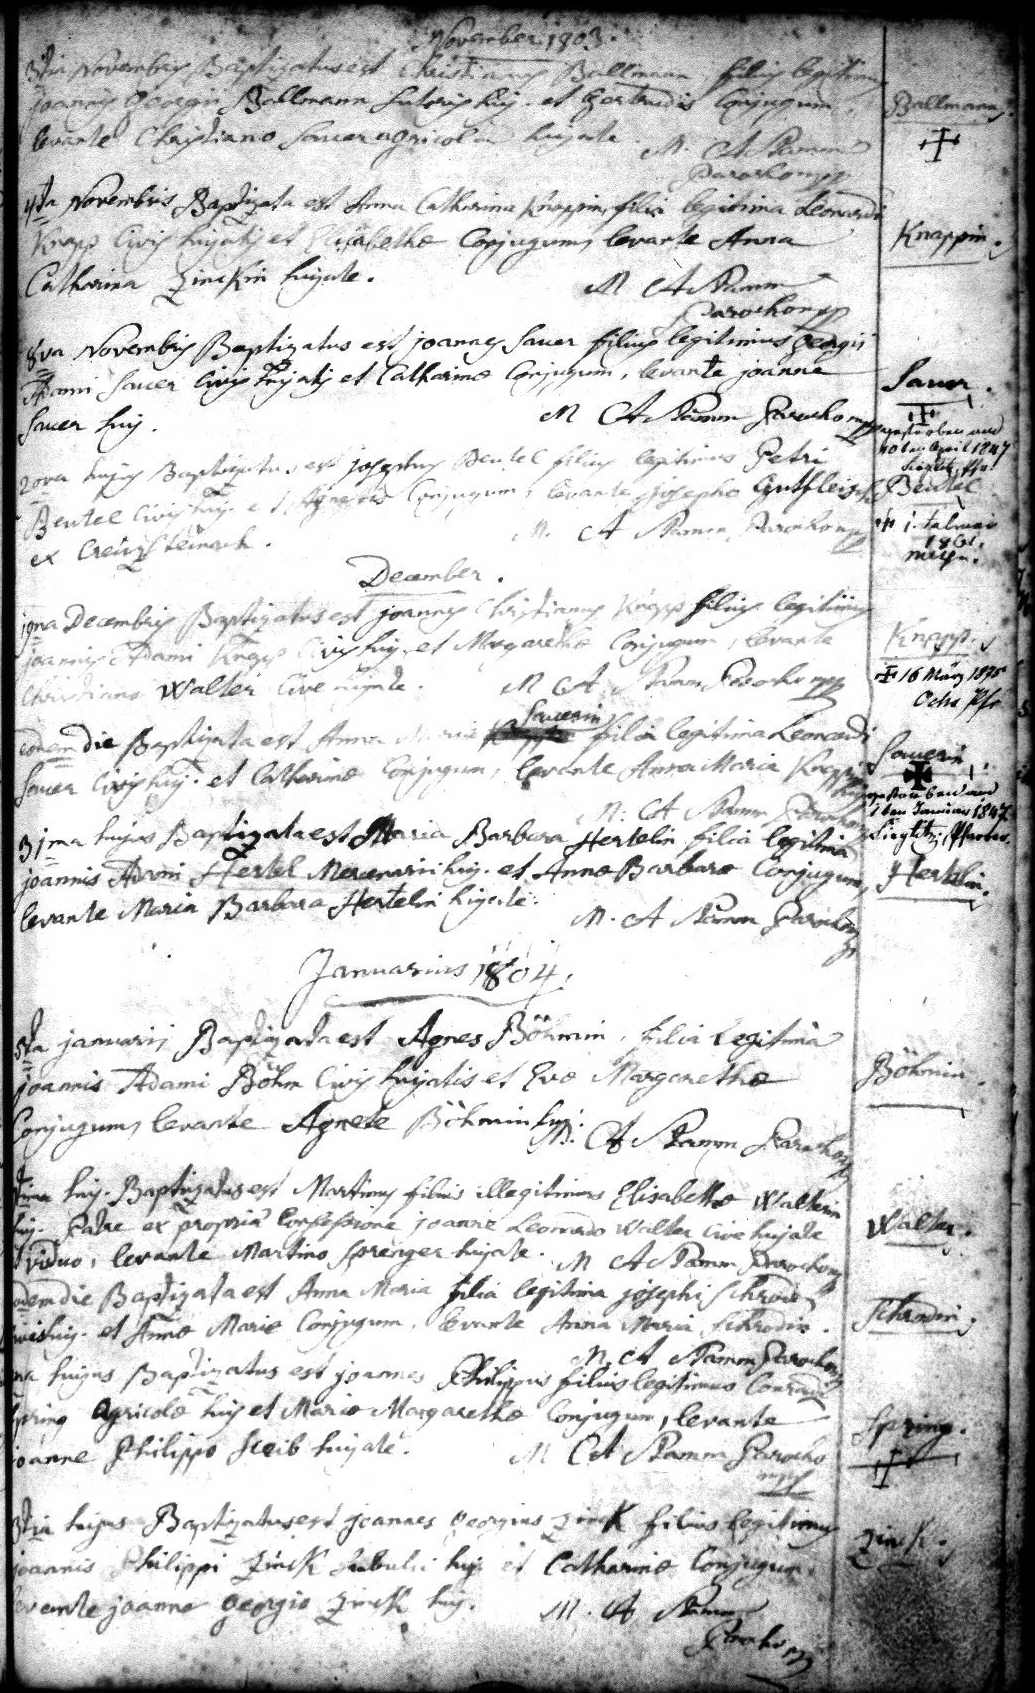 November 1803.
3tia Novembris Baptizatus est Christianus Ballmann filius legitimus
joannis Georgii Ballmann Sutoris huj. et Gertrudis Conjugum,
levante Christiano Sauer agricola hujate.
M. A Stamm
Parochus mpp
Ballmann.
4ta Novembris Baptizata est Anna Catharina Knappin filia legitima Leonardi
Knapp Civis hujatis et Elisabethæ Conjugum, levante Anna
Catharina Zinckin hujate.
M A Stamm
Parochus mpp
Knappin.
8va Novembris Baptizatus est joannes Sauer filius legitimus Georgii
Adami Sauer Civis hujatis et Catharinæ Conjugum, levante joanne
Sauer huj.
M A Stamm Parochus mpp
Sauer.
gestorben am
ten April 1847
Beutel
20va hujus Baptizatus est josephus Beutel filius legitimus Petri
Beutel Civis huj. et Agnetis Conjugum, levante josepho Gutfleisch
ex Creuzsteinach.
M. A Stamm Parochus mpp
December.
1ma Decembris Baptizatus est joannes Christianus Knapp filius legitimus
joannis Adami Knapp Civis huj. et Margarethæ Conjugum, levante
Christiano Walter Cive hujate.
M A Stamm Parochus mpp
Knapp.
16 März 1875
Ochs Pfr
eodem die Baptizata est Anna Maria Sauerin filia legitima Leonardi
Sauer Civis huj. et Catharinæ Conjugum, levante Anna Maria Knappin
M. A Stamm Parochus
Sauerin
gestorben am
ten Januar 1847
31ma hujus Baptizata est Maria Barbara Hertelin filia legitima
joannis Adami Hertel Mercenarii huj. et Annæ Barbaræ Conjugum,
levante Maria Barbara Hertelin hujate.
M. A Stamm Parochus
Hertelin.
Januarius 1804.
5ta januarii Baptizata est Agnes Böhmin, filia legitima
joannis Adami Böhm Civis hujatis et Evæ Margarethæ
Conjugum, levante Agnete Böhmin huj.
M. A Stamm Parochus
Böhmin.
huj. Baptizatus est Martinus filius illegitimus Elisabethæ Walterin
huj. Patre ex propria Confessione joanne Leonardo Walter Cive hujate
viduo, levante Martino Sprenger hujate.
M A Stamm Parochus
Walter.
eodem die Baptizata est Anna Maria filia legitima josephi Schrod
civis huj. et Annæ Mariæ Conjugum, levante Anna Maria Schrodin.
M. A Stamm Parochus
Schrodin.
hujus Baptizatus est joannes Philippus filius legitimus Conradi
Spring Agricolæ huj et Mariæ Margarethæ Conjugum, levante
joanne Philippo hujate.
M A Stamm Parochus
mpp
Spring.
3tia hujus Baptizatus est joannes Georgius Zinck filius legitimus
joannis Philippi Zinck Subulci huj. et Catharinæ Conjugum,
levante joanne Georgio Zinck huj.
M. A Stamm
Parochus
Zinck.